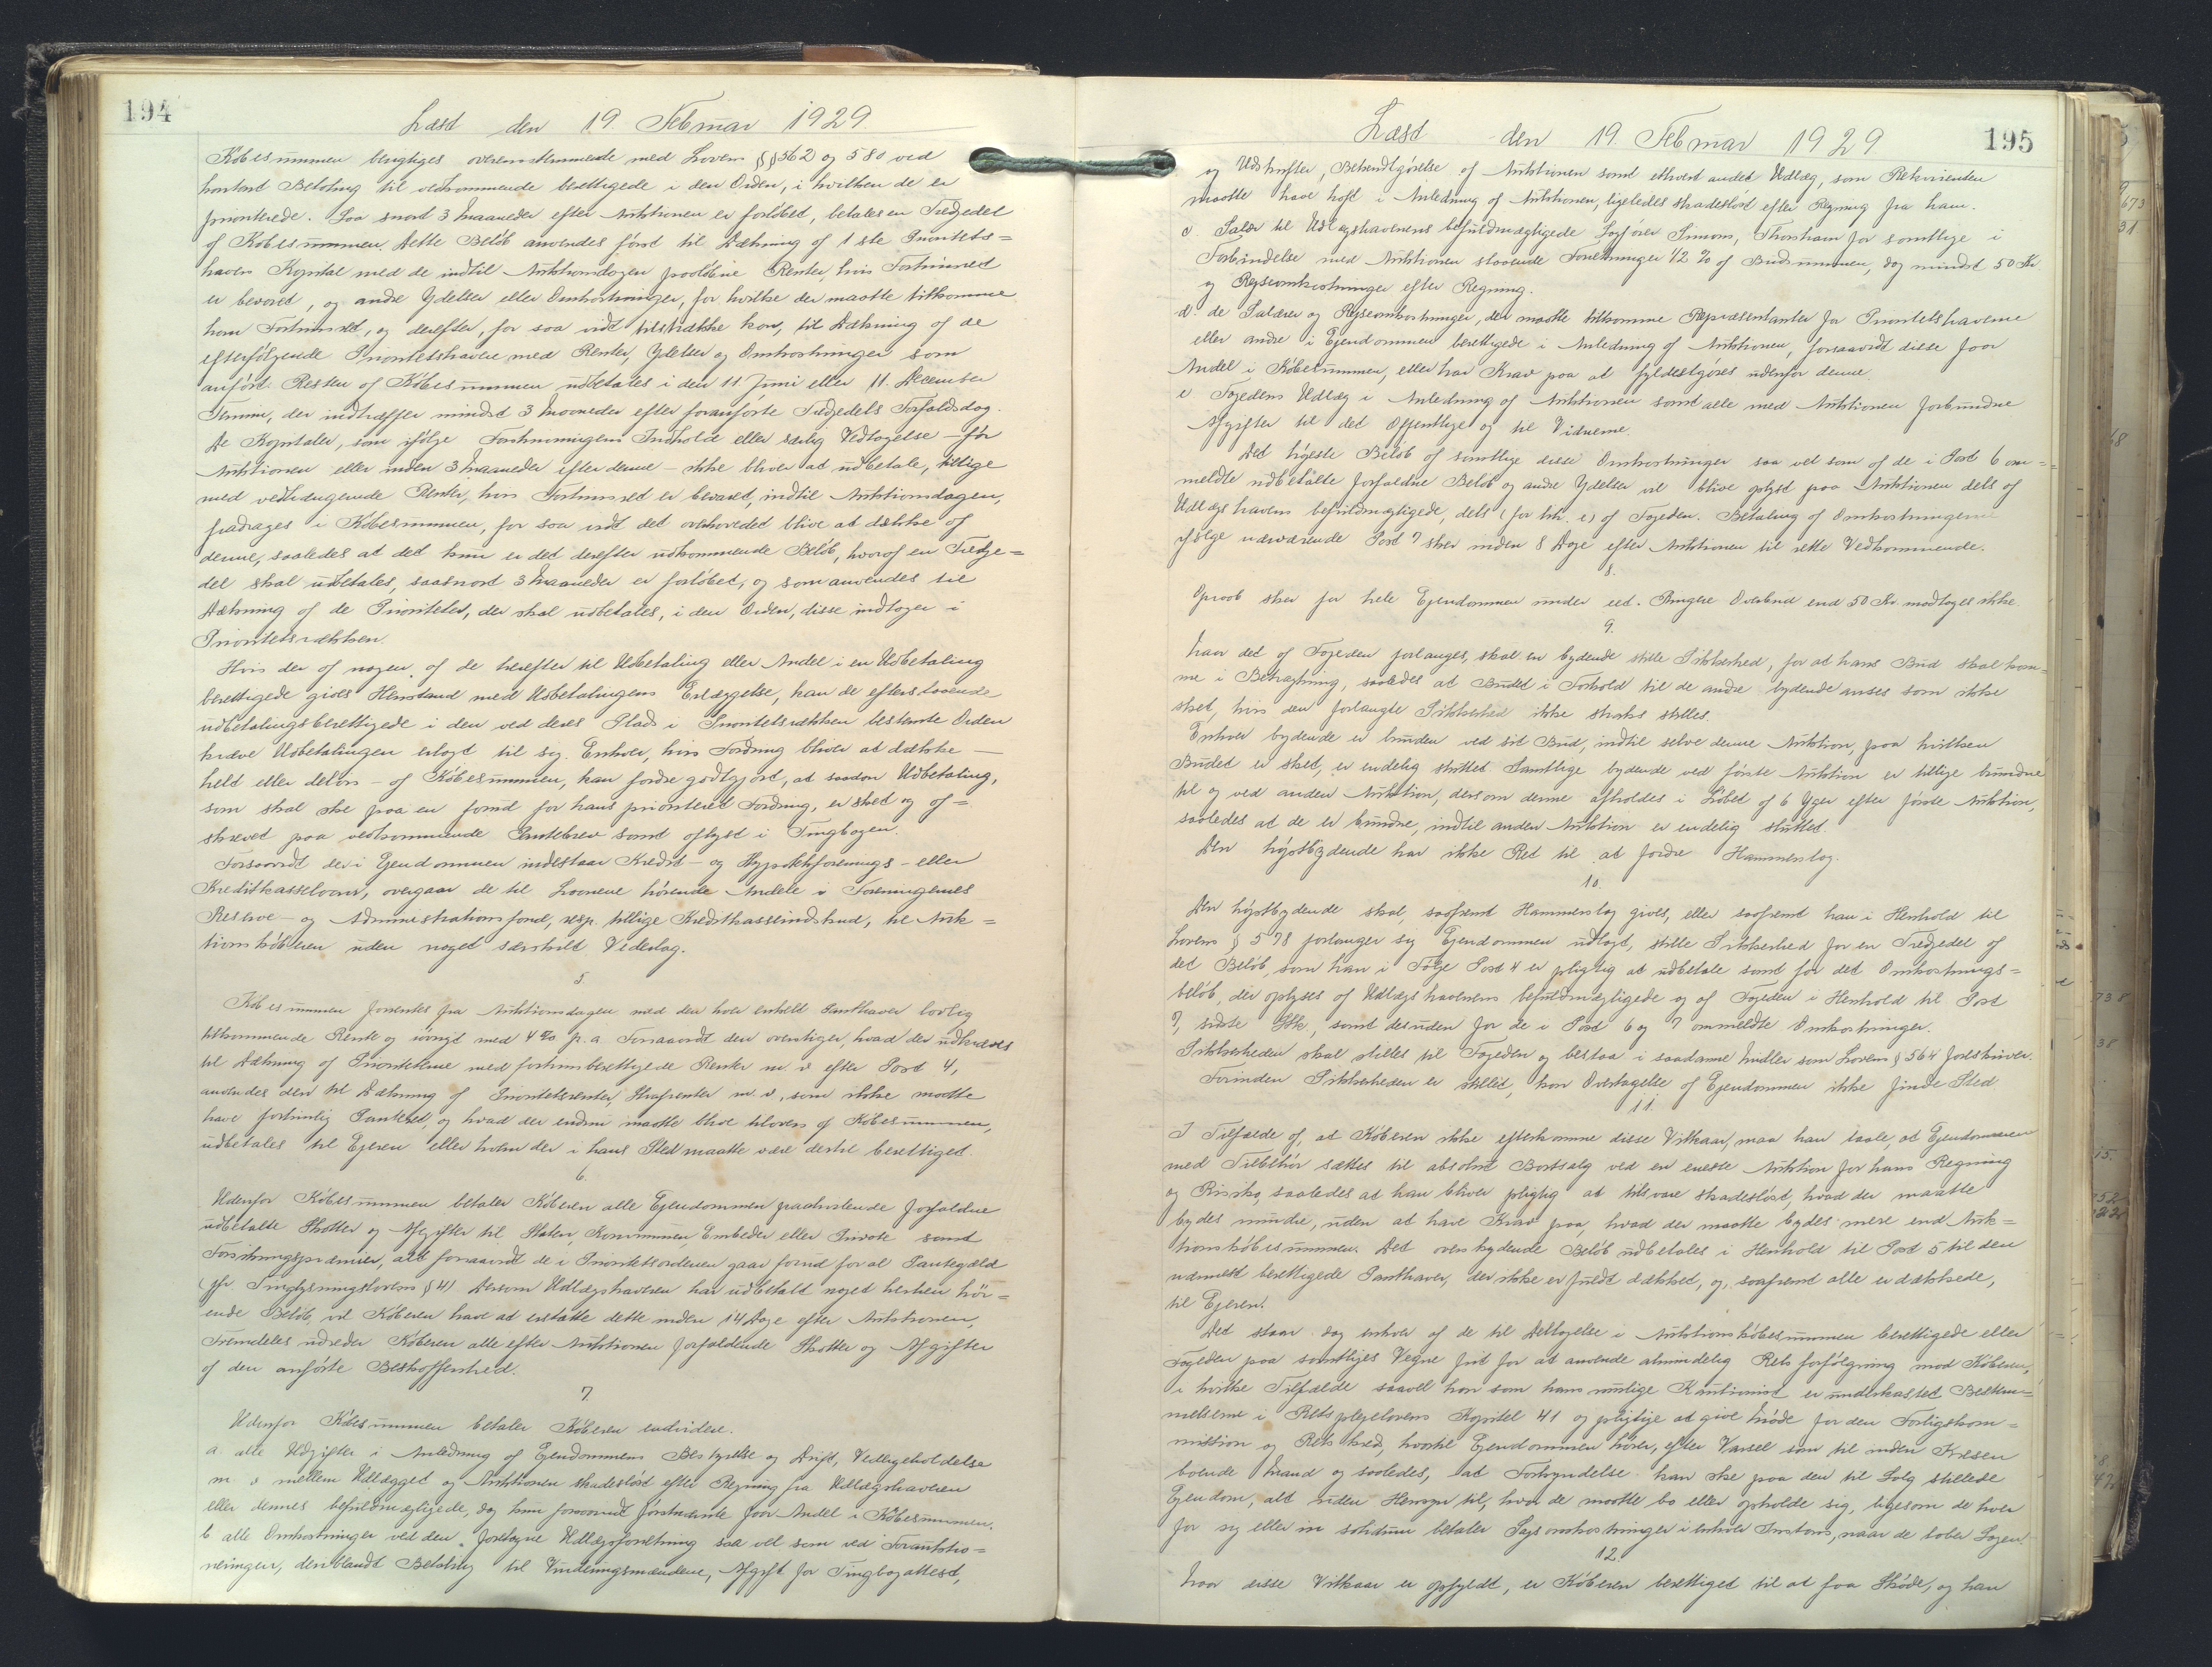 194
Læst den 19. Februar 1929.
Købesummen berigtiges overensstemmende med Lovens §§ 562 og 580 ved
kontant Betaling til vedkommende berettigede i den Orden, i hvilken de er
prioriterede. Saa snart 3 Maaneder efter Auktionen er forløbet, betales en Tredjedel
af Købesummen. Dette Beløb anvendes først til Dækning af 1ste Prioritets=
havers Kapital med de indtil Auktionsdagen paaløbne Renter, hvis Fortrinsret
er bevaret, og andre Ydelser eller Omkostninger, for hvilke der maatte tilkomme
ham Fortrinsret, og derefter, for saa vidt tilstrække kan, til Dækning af de
efterfølgende Prioritetshavere med Renter, Ydelser og Omkostninger som
anført. Resten af Købesummen udbetales i den 11. Juni eller 11. December
Termin, der indtræffer mindst 3 Maaneder efter foranførte Tredjedels Forfaldsdag.
De Kapitaler, som ifølge Forskrivningens Indhold eller særlig Vedtagelse – før
Auktionen eller inden 3 Maaneder efter denne – ikke bliver at udbetale, tillige
med vedhængende Renter, hvis Fortrinsret er bevaret, indtil Auktionsdagen,
fradrages i Købesummen, for saa vidt det overhovedet blive at dække af
denne, saaledes at det kun er det derefter udkommende Beløb, hvoraf en Tredje=
del skal udbetales, saasnart 3 Maaneder er forløbet, og som anvendes til
Dækning af de Prioriteter, der skal udbetales, i den Orden, disse indtager i
Prioritetsrækken.
Hvis der af nogen af de herefter til Udbetaling eller Andel i en Udbetaling
berettigede gives Henstand med Udbetalingens Erlæggelse, kan de efterstaaende
udbetalingsberettigede i den ved deres Plads i Prioritetsrækken bestemte Orden
kræve Udbetalingen erlagt til sig. Enhver, hvis Fordring bliver at dække –
helt eller delvis – af Købesummen, kan fordre godtgjort, at saadan Udbetaling,
som skal ske paa en forud for hans prioriteret Fordring, er sket og af=
skrevet paa vedkommende Pantebrev samt aflyst i Tingbogen.
Forsaavidt der i Ejendommen indestaar Kredit- og Hypotekforenings- eller
Kreditkasselaan, overgaar de til Laanene hørende Andele i Foreningernes
Reserve- og Administrationsfond, resp. tillige Kreditkasseindskud, til Auk=
tionskøberen uden noget særskilt Vederlag.
5
Købesummen forrentes fra Auktionsdagen med den hver enkelt Panthaver lovlig
tilkommende Rente og iøvrigt med 4% p.a. Forsaavidt den overstiger, hvad der udkræves
til Dækning af Prioriteterne med fortrinsberettigede Renter m. v. efter Post 4,
anvendes den til Dækning af Prioritetsrenter, Strafrenter m. v., som ikke maatte
have fortrinlig Panteret, og hvad der endnu maatte blive tilovers af Købesummen,
udbetales til Ejeren eller hvem der i hans Sted maatte være dertil berettiget.
6.
Udenfor Købesummen betaler Køberen alle Ejendommen paahvilende forfaldne
udbetalte Skatter og Afgifter til Staten, Kommunen, Embeder eller Private samt
Forsikringspræmier, alt forsaavidt de i Prioritetsordenen gaar forud for al Pantegæld
(jfr. Tinglysningslovens § 4). Dersom Udlægshaveren har udbetalt noget herhen hør=
ende Beløb, vil Køberen have at erstatte dette inden 14 Dage efter Auktionen.
Fremdeles udreder Køberen alle efter Auktionen forfaldende Skatter og Afgifter
af den anførte Beskaffenhed.
7
Udenfor Købesummen betaler Køberen endvidere.
a. alle Udgifter i Anledning af Ejendommens Bestyrelse og Drift, Vedligeholdelse
m. v. mellem Udlægget og Auktionen skadesløst efter Regning fra Udlægshaveren
eller dennes befuldmægtigede, dog kun forsaavidt faar Andel i Købesummen.
b alle Omkostninger ved den foretagne Udlægsforretning saa vel som ved Forauktio=
neringen, deriblandt Betaling til Vurderingsmændene, Afgift for Tingbogattest,
195
Læst den 19. Februar 1929
og Udskrifter, Bekendtgørelse af Auktionen samt ethvert andet Udlæg, som Rekvirenten
maatte have haft i Anledning af Auktionen, ligeledes skadesløst efter Regning fra ham.
c. Salær til Udlægshaverens befuldmægtigede Sagfører Simons, Thorshavn for samtlige i
Forbindelse med Auktionen staaende Forretninger 1/2 % af Budsummen, dog mindst 50 Kr
og Rejseomkostninger efter Regning.
d. de Salærer og Rejseomkostninger, der maatte tilkomme Repræsentanter for Prioritetshaverne
eller andre i Ejendommen berettigede i Anledning af Auktionen, forsaavidt disse faar
Andel i Købesummen, eller har Krav paa at fyldestgøres udenfor denne.
e Fogedens Udlæg i Anledning af Auktionen samt alle med Auktionen forbundne
Afgifter til det Offentlige og til Vidnerne.
Det højeste Beløb af samtlige disse Omkostninger saa vel som af de i Post 6 om=
meldte udbetalte forfaldne Beløb og andre Ydelser vil blive oplyst paa Auktionen dels af
Udlægshavers befuldmægtigede, dels (for Litr. e) af Fogeden. Betaling af Omkostningerne
ifølge nærværende Post 7 sker inden 8 Dage efter Auktionen til rette Vedkommende.
8.
Opraab sker for hele Ejendommen under eet. Ringere Overbud end 50 Kr. modtages ikke.
9.
Naar det af Fogeden forlanges, skal en bydende stille Sikkerhed, for at hans Bud skal kom=
me i Betragtning, saaledes at Budet i Forhold til de andre bydende anses som ikke
sket, hvis den forlangte Sikkerhed ikke straks stilles.
Enhver bydende er bunden ved sit Bud, indtil selve denne Auktion, paa hvilken
Budet er sket, er endelig sluttet. Samtlige bydende ved første Auktion er tillige bundne
til og ved anden Auktion, dersom denne afholdes i Løbet af 6 Uger efter første Auktion,
saaledes at de er bundne, indtil anden Auktion er endelig sluttet.
Den højstbydende har ikke Ret til at fordre Hammerslag.
10.
Den højstbydende skal, saafremt Hammerslag gives, eller saafremt han i Henhold til
Lovens § 578 forlanger sig Ejendommen udlagt, stille Sikkerhed for en Tredjedel af
det Beløb, som han i Følge Post 4 er pligtig at udbetale samt for det Omkostnings=
beløb, der oplyses af Udlægshaverens befuldmægtigede og af Fogeden i Henhold til Post
7, sidste Stk., samt desuden for de i Post 6 og 7 ommeldte Omkostninger.
Sikkerheden skal stilles til Fogeden og bestaa i saadanne Midler som Lovens § 564 foreskriver.
Forinden Sikkerheden er stillet, kan Overtagelse af Ejendommen ikke finde Sted.
11.
I Tilfælde af, at Køberen ikke efterkomme disse Vilkaar, maa han taale, at Ejendommen
med Tilbehør sættes til absolut Bortsalg ved en eneste Auktion for hans Regning
og Risiko, saaledes at han bliver pligtig at tilsvare skadesløst, hvad der maatte
bydes mindre, uden at have Krav paa, hvad der maatte bydes mere end Auk=
tionskøbesummen. Det overskydende Beløb udbetales i Henhold til Post 5 til den
nærmest berettigede Panthaver, der ikke er fuldt dækket, og, saafremt alle er dækkede,
til Ejeren.
Det staar dog enhver af de til Deltagelse i Auktionskøbesummen berettigede eller
Fogeden paa samtliges Vegne frit for at anvende almindelig Retsforfølgning mod Køberen,
i hvilke Tilfælde saavel han som hans mulige Kautionist er underkastet Bestem=
melserne i Retsplejelovens Kapitel 41 og pligtige at give Møde for den Forligskom=
mission og Retskreds, hvortil Ejendommen hører, efter Varsel som til inden Kredsen
boende Mand og saaledes, at Forkyndelse kan ske paa den til Salg stillede
Ejendom, alt uden Hensyn til, hvor de maatte bo eller opholde sig, ligesom de hver
for sig eller in solidum betaler Sagsomkostninger i enhver Instans, naar de taber Sagen.
12
Naar disse Vilkaar er opfyldt, er Køberen berettiget til at faa Skøde, og han